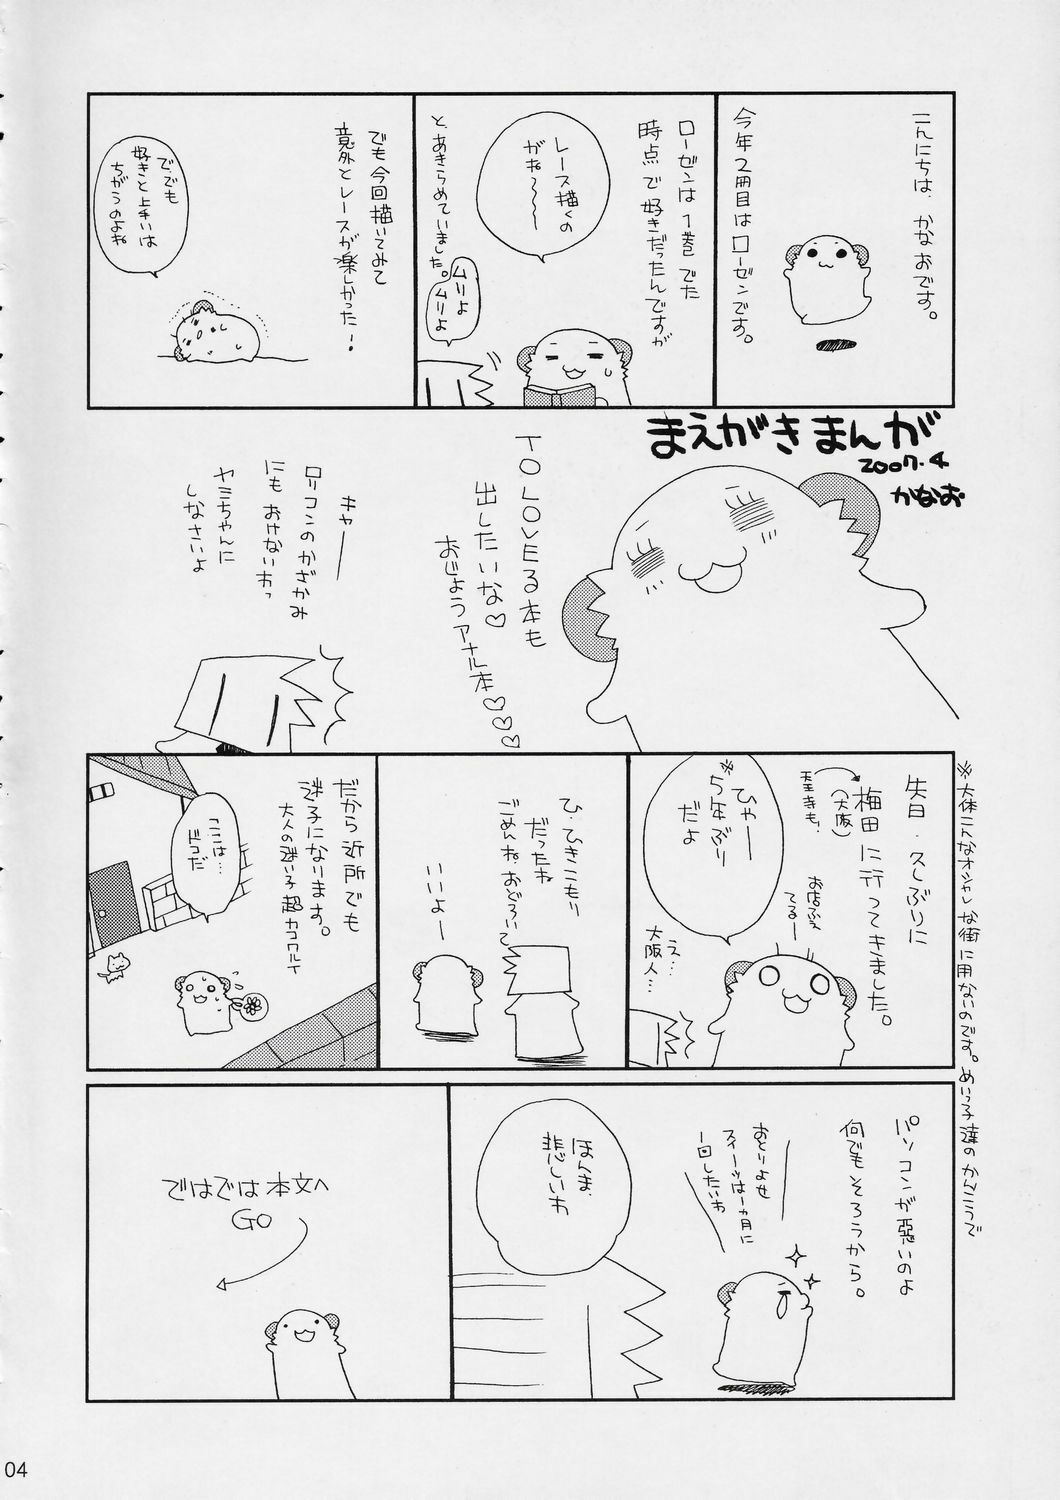 こんにちは、かなおです。
今年2冊目はローゼンです。
ローゼンは1巻でた
時点で好きだったんですが
レース描くの
がね〜〜〜
と、あきらめていました。
ムリよ
ムリよ
でも今回描いてみて
意外とレースが楽しかった!
で、でも
好きと上手いは
ちがうのよね
まえがきまんが
2007.4
かなお
TO LOVEる本も
出したいな♡
おじょうアナル本♡♡♡
キャー
ロリコンのかざかみ
にもおけないわっ
ヤミちゃんに
しなさいよ
※大体こんなオシャレな街に用ないのです。めいっ子達のかんこうで
先日、久しぶりに
梅田に行ってきました。
(大阪)
天王寺も、
ひゃー
※5年ぶり
だよ
お店ふえ
てるー
え…
大阪人…
ひ、ひきこもり
だったね
ごめんねおどろいて
いいよー
だから近所でも
迷子になります。
大人の迷い子超カコワルイ
ここは…
ドコだ
パソコンが悪いのよ
何でもそろうから。
おとりよせ
スイーツは1ヵ月に
1回したいわ
ほんま、
悲しいわ
ではでは本文へ
GO
04